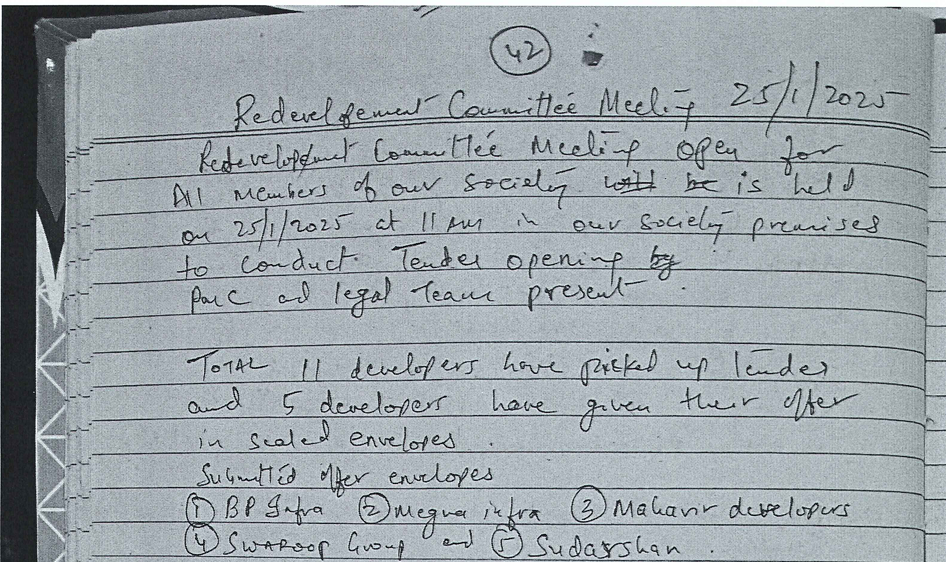 42
Redevelopement Committee Meeting 25/1/2025
Redevelopment Committee Meeting open for
All members of our society will be is held
on 25/1/2025 at 11 AM in our society premises
to conduct. Tender opening by
PMC ad legal Team present.
TOTAL 11 developers have picked up tender
and 5 developers have given their offer
in sealed envelopes.
Submitted offer envelopes
① BP Infra ② Megha infra ③ Mahavir developers
④ SWAROOP Group and ⑤ Sudarshan.